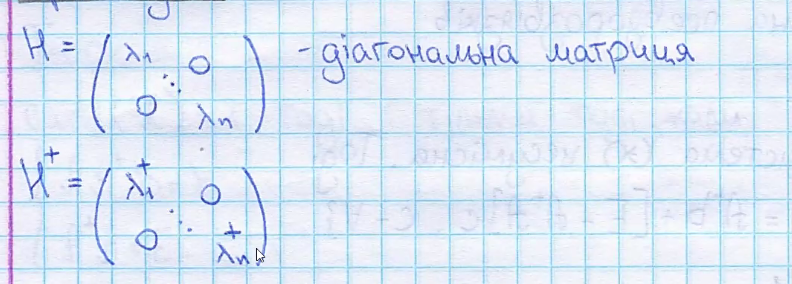 H = ( λ1 0 - діагональна матриця
⋱
0 λn )
H⁺ = ( λ1⁺ 0
⋱
0 λn⁺ )